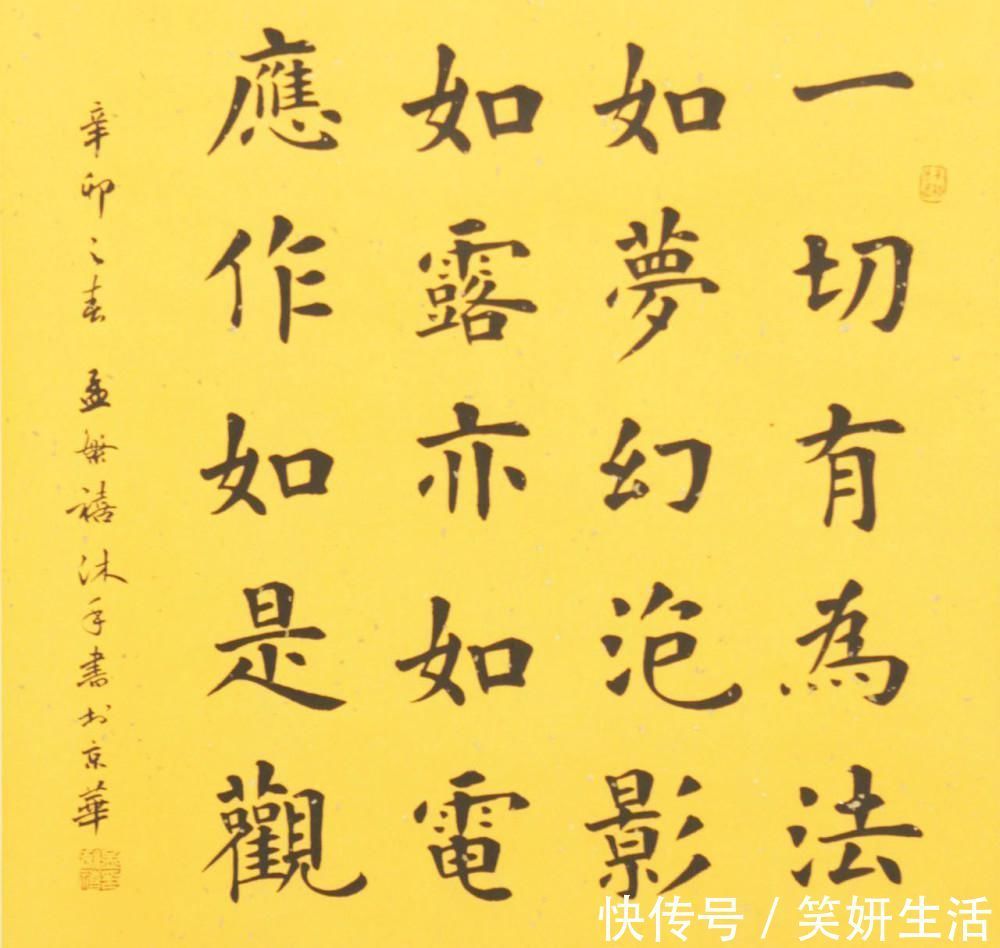 一切有為法
如夢幻泡影
如露亦如電
應作如是觀
辛卯之春 孟繁禧沐手書於京華
快传号 / 笑妍生活